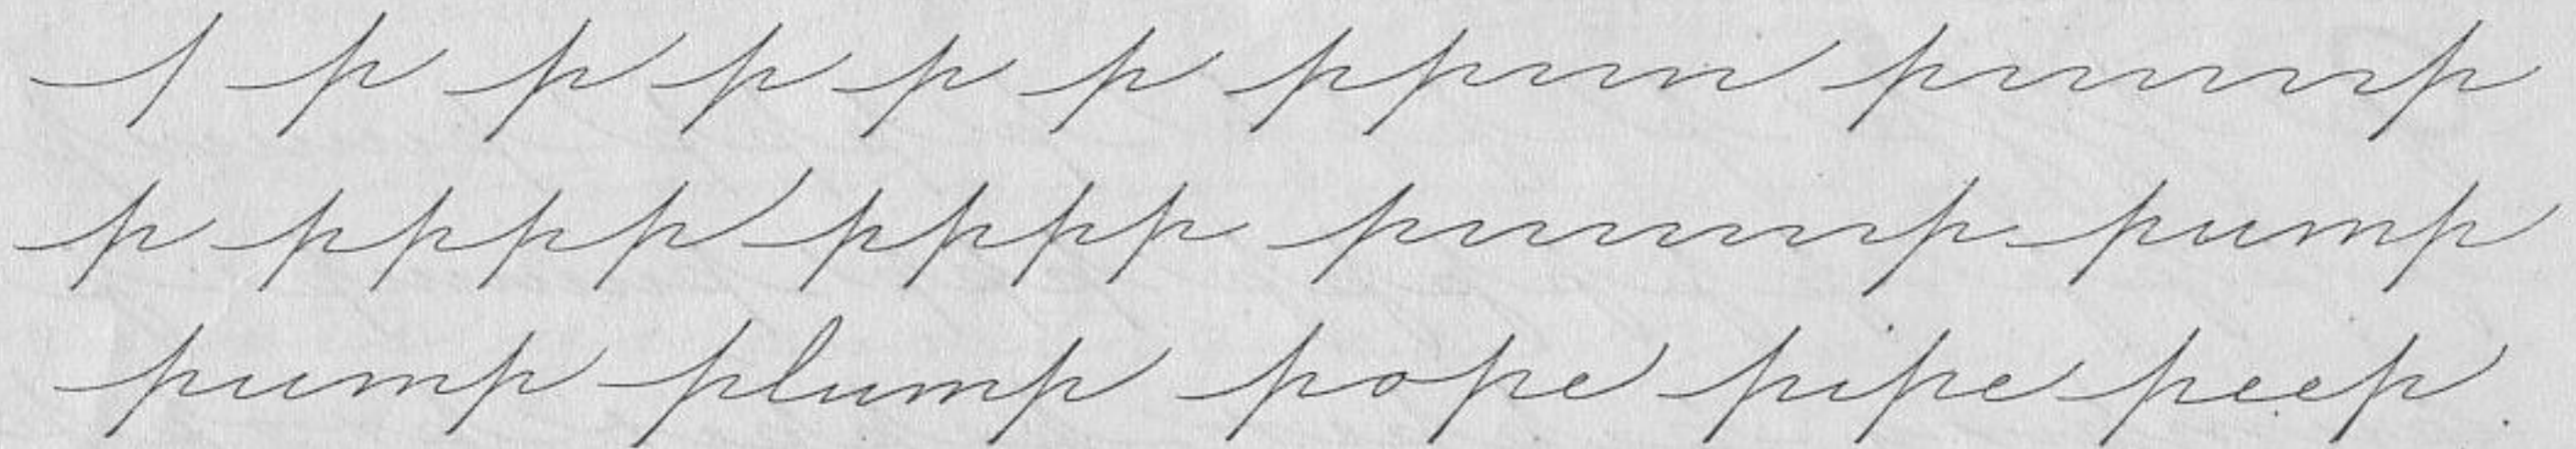 p p p p p p ppnn pnnnp
p pppp pppp pnnnp pump
pump plump pope pipe peep